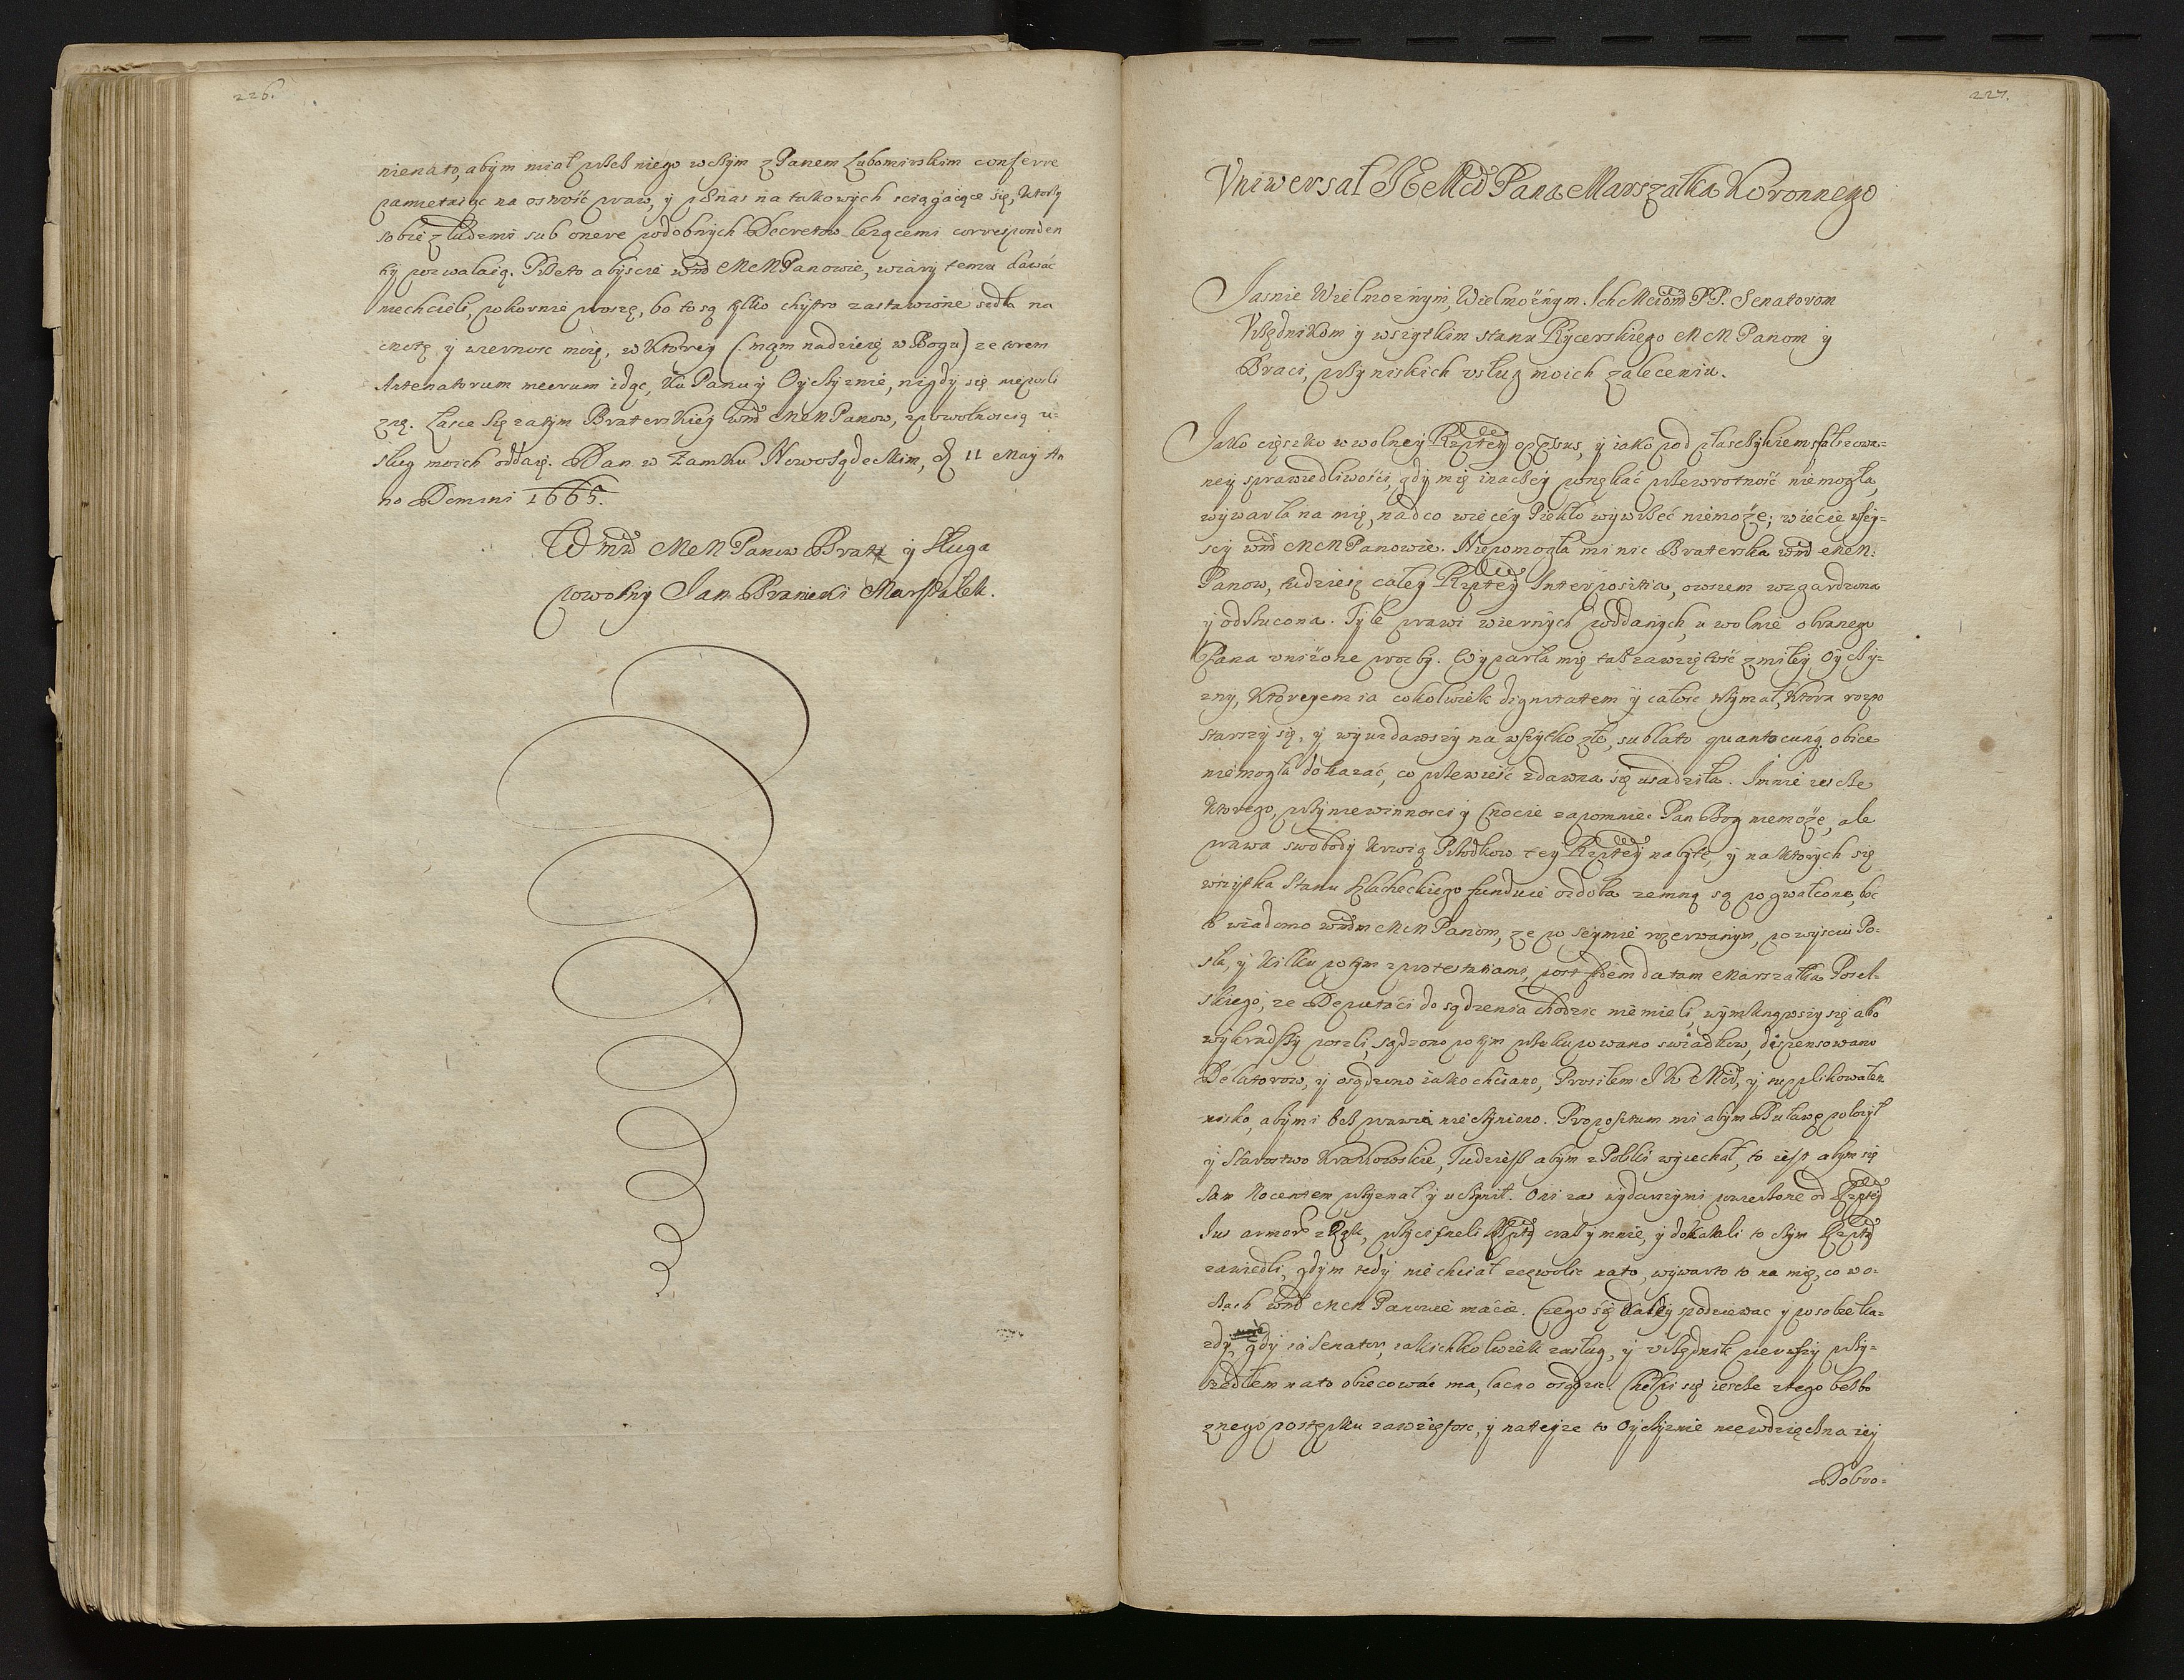 226.
nienato, abym miał przeb niego wczym z Panem Lubomirskim conferre
pamietaiąc na osrość praw, y penas na takowych sciągáiące się, ktorzy
sobie z ludzmi sub onere podobnych Decretow lezącemi corresponden
ty pozwalaią. Przeto abyscie wmć MeMPanowie, wiary temu dawać
niechcieli, pokornie proszę, bo to są tylko chytro zastawione sidła na
cnotę y wiernosc moię, w ktorey (mąm nadzieię w Bogu) ze torem
Antenatorum meorum idąc, ku Panu y Oyczyznie, nigdy się niepośli
znę. Łasce się zatym Braterskiey wmć MeMPanow, z powolnoscią u-
sług moich oddaię. Dan w Zamku Nowosądeckim, d 11 May An
no Domini 1665.
Wmć MeMPanow Brat y sługa
powolny Jan Branicki Marszałek.
227.
Vniwersał JEMći Pana Marszałka Koronnego
Jasnie Wielmoznym, Wielmożnym Ich Mciom PP. Senatorom
Vrzędnikom y wszytkim stanu Rycerskiego MM Panom y
Braci, przy niskich vsług moich zaleceniu.
Jako cięszko w wolney Rzptey oppressus, y iako pod płasczykiem sfałszowa-
ney sprawiedliwości, gdy mię inaczey pongbać przewrotność niemogła,
wywarła na mię, nadco więcey Piekło wywrzeć niemoże; wiecie wszy-
scy wmć MMPanowie. Niepomogła mi nic Braterska wmć MMM:
Panow, tudziesz całey Rzptey Interpositia, owszem wzgardzona
y odrzucona. Tyle prawi wiernych poddanych, u wolnie obranego
Pana vniżone prozby. Wyparła mię tak zawziętość z miłey Oyczy-
zny, ktoregem ia cokolwiek dignitatem y całosc trzymał, ktora rozpo
starszy się, y wyuzdawszy na wszytko złe, sublato quantocunq. obice
niemogła dokazać, co przewieść zdawna się usadziła. Jmnie iescze
ktorego, przy niewinnosci y Cnocie zapomniec Pan Bog niemoże, ale
prawa swobody krwią Przodkow tey Rzptey nabyte, y na ktorych się
wszystka Stanu szlacheckiego funduie ozdoba zemną są pogwałcone, boc
to wiadomo wmćm MMPanom, ze po seymie rozerwanym, po wysciu Po-
sła, y kilku potym z protestatiami, post fidem datam Marszałka Posel-
skiego, ze Deputáci do sądzenia chodzic niemieli, wymknąwszy się abo
wykradszy poszli, sądzono potym przekupowano swiadkow, dispensowano
Delatorow, y osądzono iako chciano, Prosiłem JK Mći, y supplikowałem
nisko, abymi bez prawia nie czyniono. Propositum mi abym Buławę położył
y Starostwo Krakowskie, Tudzież abym z Polski wyiechał, to iest abym się
sam Nocentem przyznał y uczynił. Oni za wydarszymi powierzone od Rzptey
Jus armorum z Rąk, przycisneli Rzptą cało y mnie, y dokazali to czym Rzptą
zawiedli, gdym tedy niechciał zezwolic nato, wywarto to na mię, co w o-
czach wmć MM Panowie macie. Czego się daley spodziewac y po sobie ka-
zdy, gdy ia Senator, iakichkolwiek zasług, y vrzędnik pierwszy przy-
szedłem nato obiecowáć ma, łacno osądzic. Chełpi się iescze z tego bezbo
znego postępku zawziętosc, y nateyze to Oyczyznie niewdzięczna iey
Dobro-